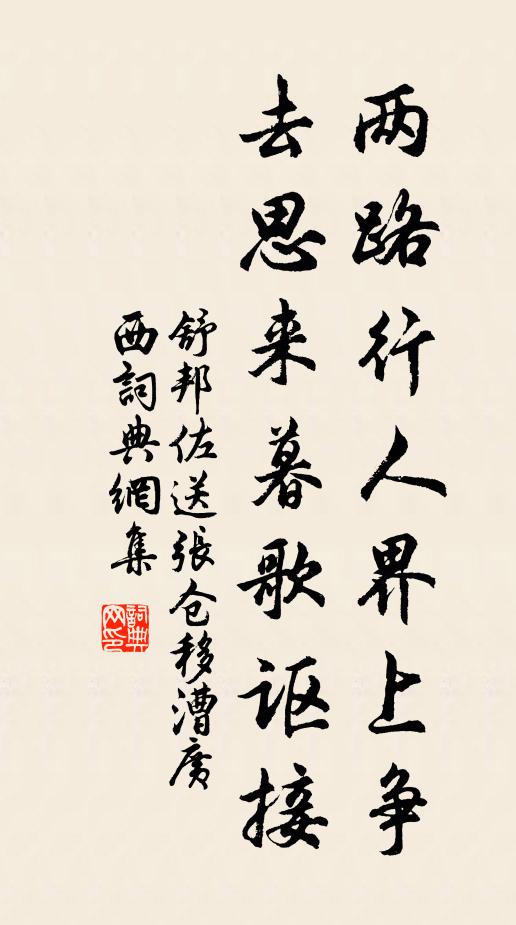 两路行人界上争
去思来暮歌讴接
舒邦佐送張仓移漕廣
西詞典網集
詞典网印